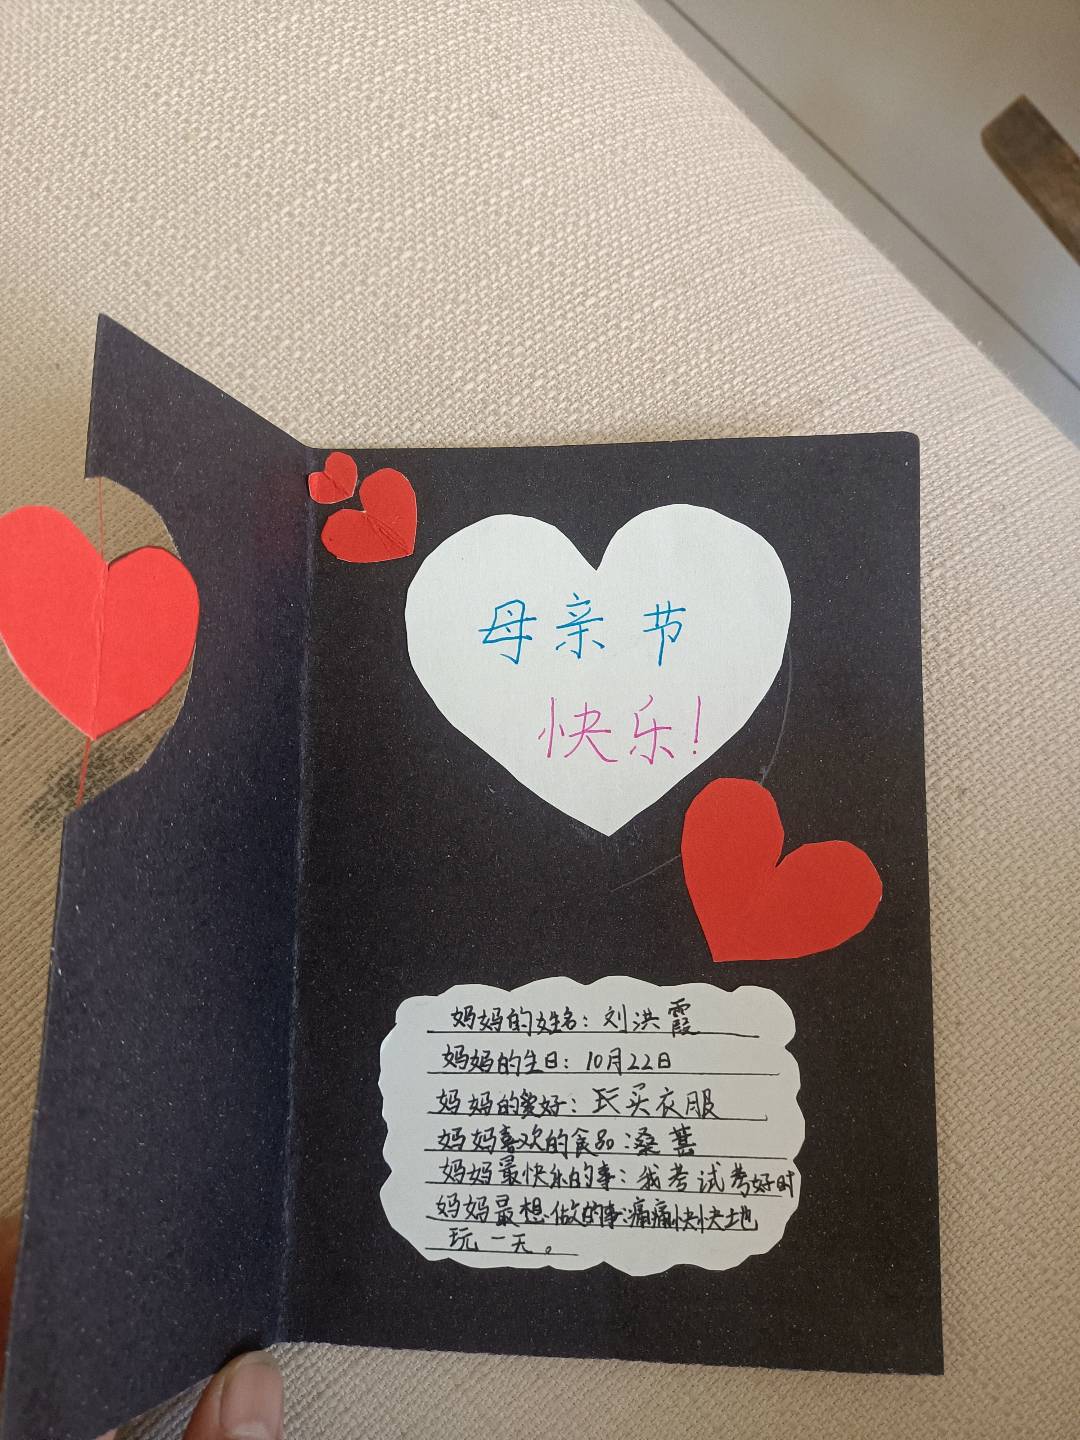 母亲节
快乐!
妈妈的姓名:刘洪霞
妈妈的生日:10月22日
妈妈的爱好:玩买衣服
妈妈喜欢的食品:桑葚
妈妈最快乐的事:我考试考好时
妈妈最想做的事:痛痛快快地
玩一天。